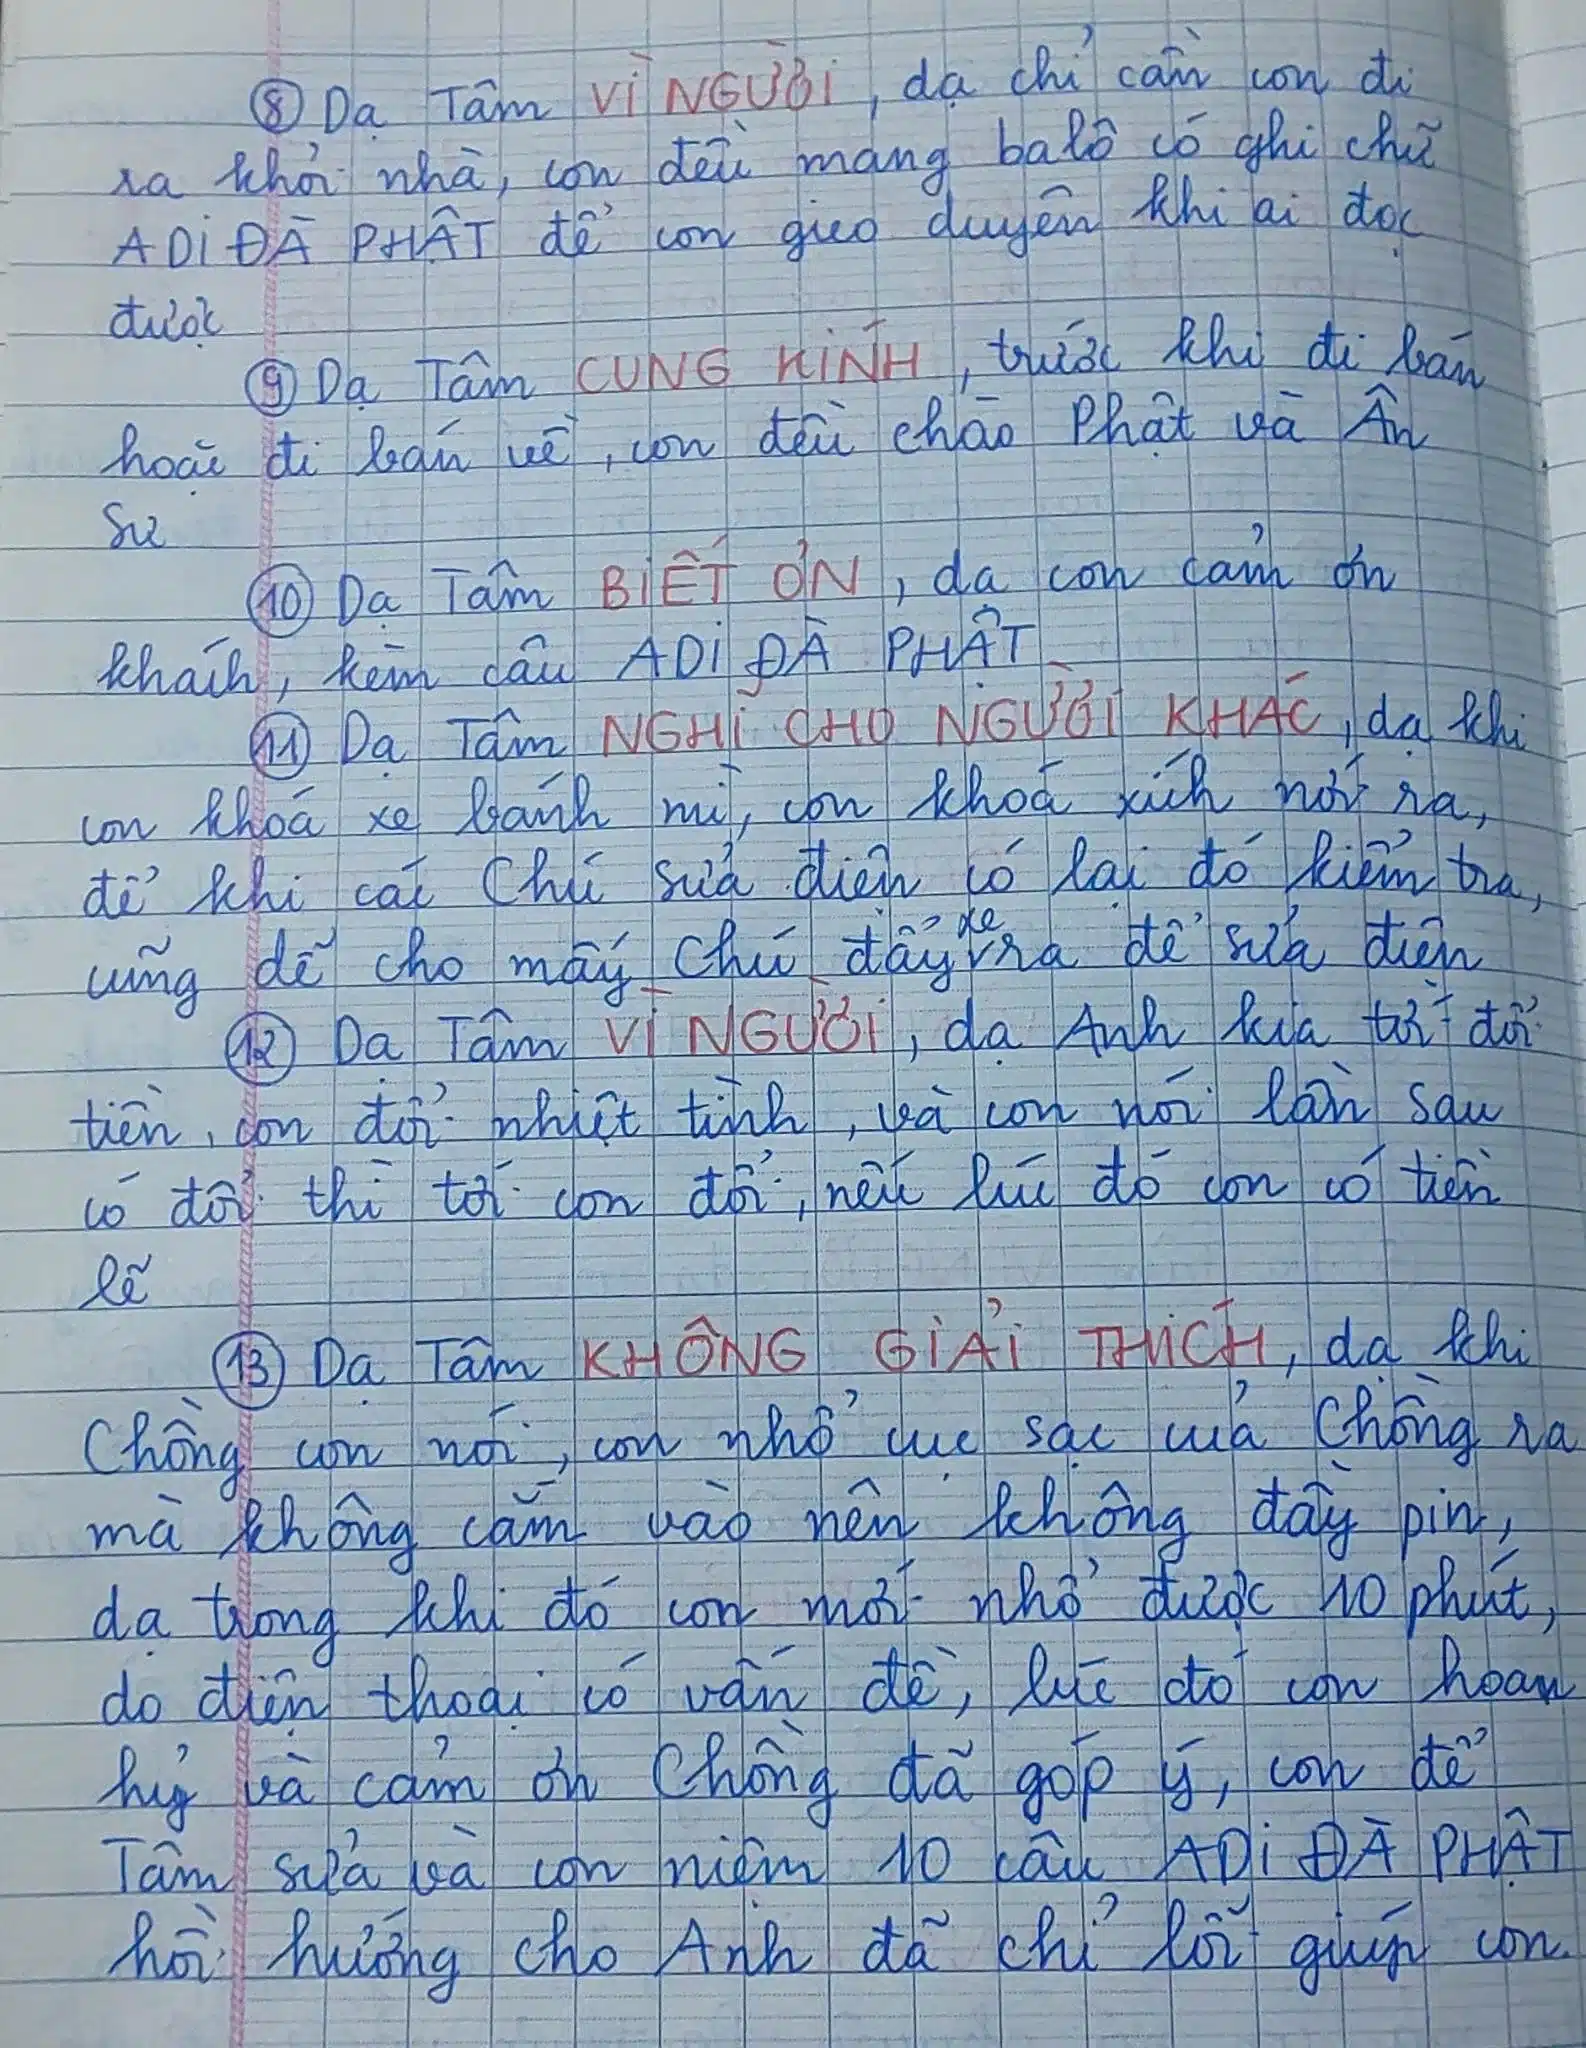 ⑧ Dạ Tâm VÌ NGƯỜI, dạ chỉ cần con đi
ra khỏi nhà, con đều mang balô có ghi chữ
ADIĐÀ PHẬT để con gieo duyên khi ai đọc
được
⑨ Dạ Tâm CUNG KÍNH, trước khi đi bán
hoặc đi bán về, con đều chào Phật và Ân
Sư
⑩ Dạ Tâm BIẾT ƠN, dạ con cảm ơn
khách, kèm câu ADIĐÀ PHẬT
⑪ Dạ Tâm NGHĨ CHO NGƯỜI KHÁC, dạ khi
con khoá xe bánh mì, con khoá xích nới ra,
để khi các Chú sửa điện có lại đó kiểm tra,
cũng dễ cho mấy Chú đẩy xe ra để sửa điện
⑫ Dạ Tâm VÌ NGƯỜI, dạ Anh kia tới đổi
tiền, con đổi nhiệt tình, và con nói lần sau
có đổi thì tới con đổi, nếu lúc đó con có tiền
lẽ
⑬ Dạ Tâm KHÔNG GIẢI THÍCH, dạ khi
Chồng con nói, con nhổ cục sạc của Chồng ra
mà không cắm vào nên không đầy pin,
dạ trong khi đó con mới nhổ được 10 phút,
do điện thoại có vấn đề, lúc đó con hoan
hỷ và cảm ơn Chồng đã góp ý, con để
Tâm sửa và con niệm 10 câu ADIĐÀ PHẬT
hồi hướng cho Anh đã chỉ lỗi giúp con.